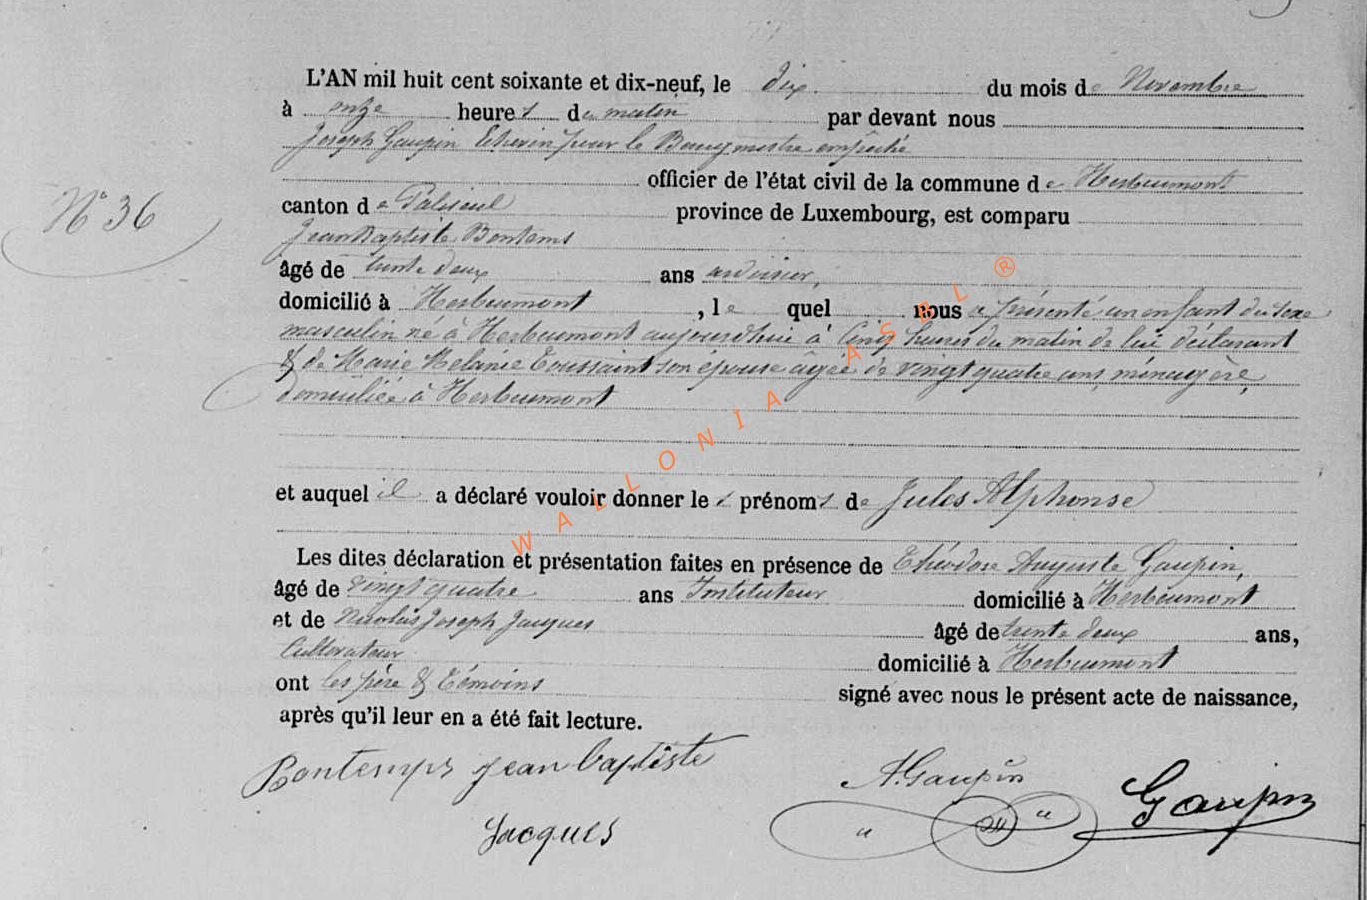 L'AN mil huit cent soixante et dix-neuf, le dix. du mois de Novembre
à onze heures du matin par devant nous
Joseph Gaupin Echevin pour le Bourgmestre empêché
officier de l'état civil de la commune de Herbeumont
N° 36
canton de Paliseul province de Luxembourg, est comparu
Jean Baptiste Bontems
âgé de trente deux ans ardoisier,
domicilié à Herbeumont, lequel nous a présenté un enfant du sexe
masculin né à Herbeumont aujourd'hui à cinq heures du matin de lui déclarant
& de Marie Mélanie Toussaint son épouse âgée de vingt quatre ans, ménagère,
domiciliée à Herbeumont
et auquel il a déclaré vouloir donner les prénoms de Jules Alphonse
Les dites déclaration et présentation faites en présence de Théodore Auguste Gaupin,
âgé de vingt quatre ans Instituteur domicilié à Herbeumont
et de Nicolas Joseph Jacques âgé de trente deux ans,
Cultivateur domicilié à Herbeumont
ont les père & témoins signé avec nous le présent acte de naissance,
après qu'il leur en a été fait lecture.
Bontemps jean baptiste A. Gaupin Gaupin
Jacques
WALLONIA ASBL ®